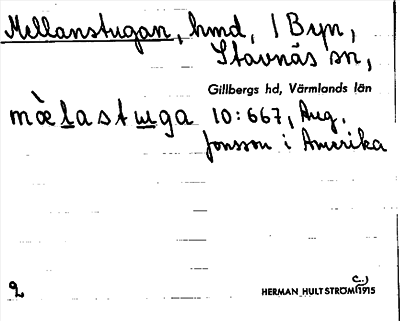 Mellanstugan, hmd, i Byn,
Stavnäs sn,
Gillbergs hd, Värmlands län
mæ̀lastuga 10:667, Aug.
Jonsson i Amerika
HERMAN HULTSTRÖM (C.) 1915